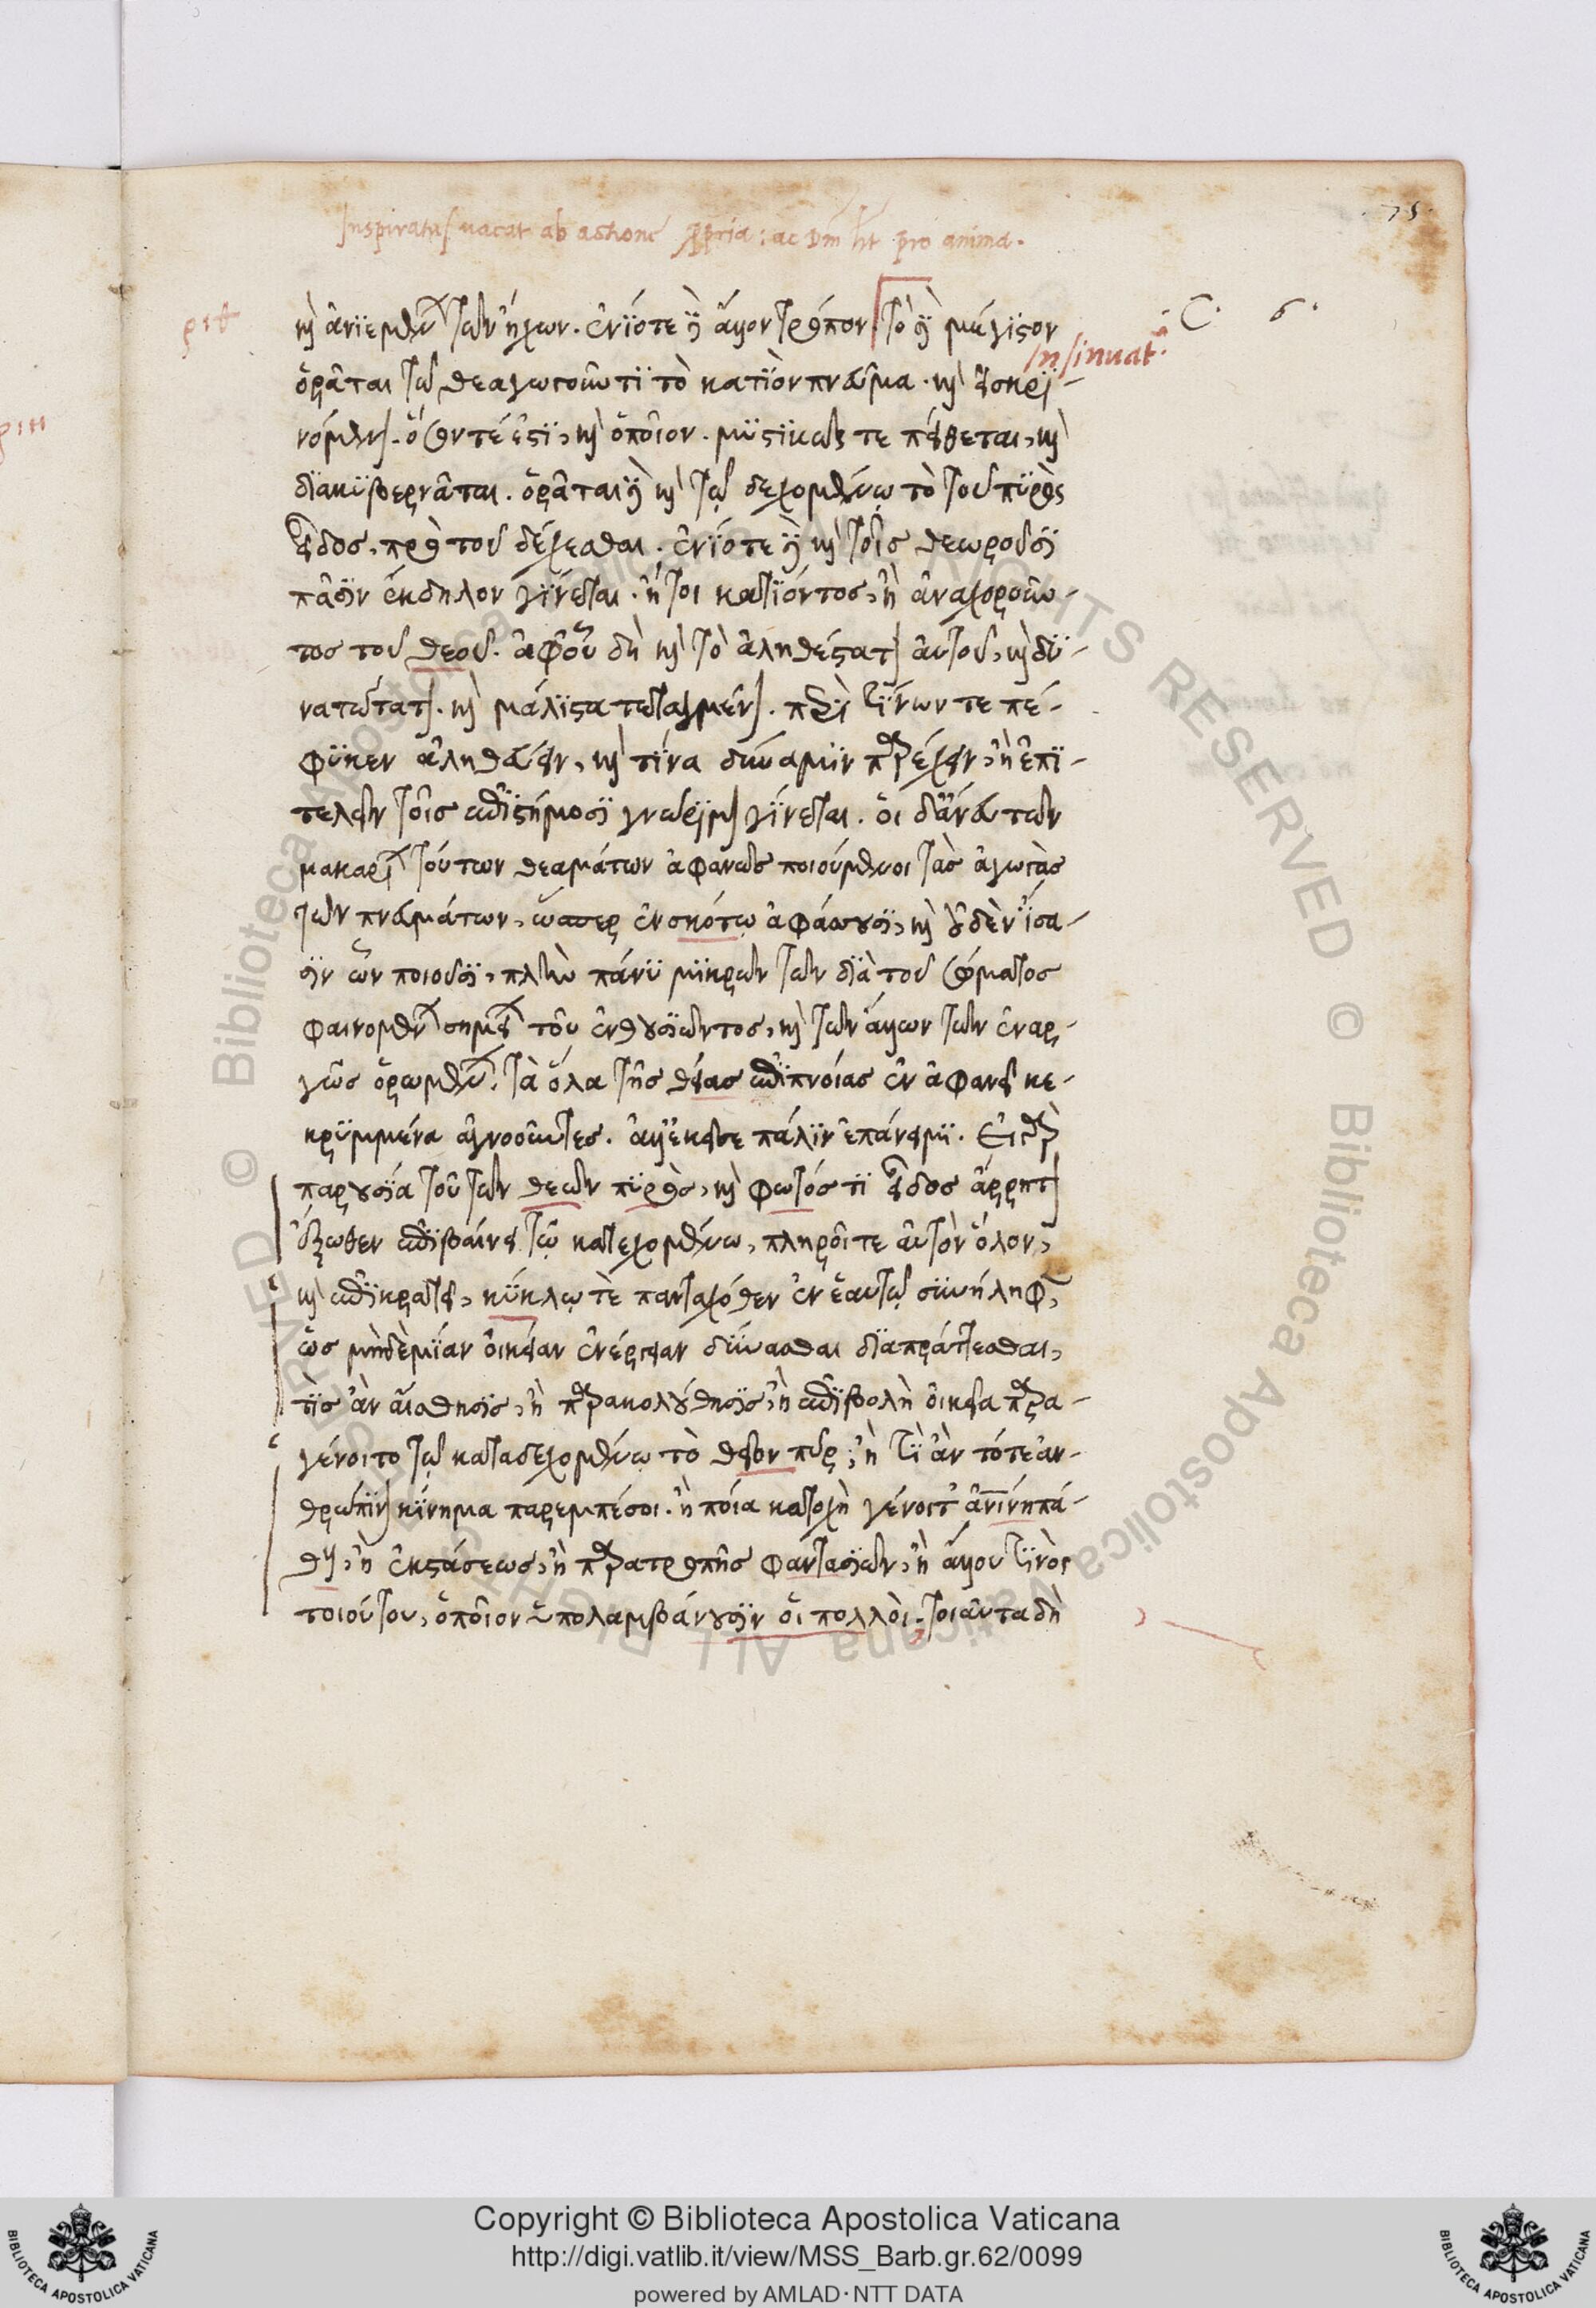 Inspiratus vacat ab actione propria : ac Dm ht pro anima.
75.
C. 6.
Insinuat
ριθ
καὶ ἀνϊεμένων τῶν ἤχων. ἐνϊότε δὲ ἄλλον τρόπον. Τὸ δὲ μέγϊστον
ὁρᾶται τῷ θεαγωγοῦντϊ τὸ κατϊὸν πνεῦμα. καὶ εἰσκρϊ-
νόμενον. ὅσον τέ ἐστϊ, καὶ ὁποῖον. μϋστϊκῶς τε πείθεται, καὶ
δϊακϋβερνᾶται. ὁρᾶται δὲ καὶ τῷ δεχομένῳ τὸ τοῦ πϋρὸς
εἶδος, πρὸ τοῦ δέχεσθαι. ἐνϊότε δὲ καὶ τοῖς θεωροῦσϊ
πᾶσϊν ἔκδηλον γΐνεται. ἤτοι κατϊόντος, ἢ ἀναχωροῦν-
τος τοῦ θεοῦ. ἀφοῦ δὴ καὶ τὸ ἀληθέστατον αὐτοῦ, καὶ δϋ-
νατώτατον. καὶ μάλϊστα τεταγμένον. περὶ τΐνων τε πέ-
φϋκεν ἀληθεύειν, καὶ τΐνα δύναμϊν παρέχειν, ἢ ἐπϊ-
τελεῖν τοῖς ἐπϊστήμοσϊ γνώρϊμον γΐνεται. οἱ δ' ἄνευ τῶν
μακαρίων τούτων θεαμάτων ἀφανῶς ποιούμενοι τὰς ἀγωγὰς
τῶν πνευμάτων, ὥσπερ ἐν σκότῳ ἀφάσσουσϊ, καὶ οὐδὲν ἴσα-
σϊν ὧν ποιοῦσϊ, πλὴν πάνϋ μϊκρῶν τῶν δϊὰ τοῦ σώματος
φαινομένων σημείων τοῦ ἐνθουσϊῶντος, καὶ τῶν ἄλλων τῶν ἐναρ-
γῶς ὁρωμένων. τὰ ὅλα τῆς θείας ἐπϊπνοίας ἐν ἀφανεῖ κε-
κρϋμμένα ἀγνοοῦντες. ἀλλ' ἐκεῖσε πάλϊν ἐπάνειμϊ. Εἰ γὰρ
παρουσΐα τοῦ τῶν θεῶν πϋρὸς, καὶ φωτός τϊ εἶδος ἄρρητον
ἔξωθεν ἐπϊβαίνει τῷ κατεχομένῳ, πληροῖ τε αὐτὸν ὅλον,
καὶ ἐπϊκρατεῖ, κΰκλῳ τὲ πανταχόθεν ἐν ἑαυτῷ συνήληφεν,
ὡς μὴδὲμΐαν οἰκείαν ἐνέργειαν δύνασθαι δϊαπράττεσθαι,
τΐς ἂν αἴσθησϊς, ἢ παρακολούθησϊς, ἢ ἐπϊβολὴ οἰκεία παρα-
γένοιτο τῷ καταδεχομένῳ τὸ θεῖον πῦρ; ἢ τΐ ἂν τότε ἀν-
θρώπϊνον κΐνημα παρεμπέσοι. ἢ ποία κατοχὴ γένοιτ' ἀνϊνηπά-
θους, ἢ ἐκστάσεως, ἢ παρατροπῆς φαντασϊῶν, ἢ ἄλλου τϊνὸς
τοιούτου, ὁποῖον ὑπολαμβάνουσϊν οἱ πολλοὶ. τοιαῦτα δὴ
Copyright © Biblioteca Apostolica Vaticana
http://digi.vatlib.it/view/MSS_Barb.gr.62/0099
powered by AMLAD·NTT DATA
BIBLIOTECA APOSTOLICA VATICANA
BIBLIOTECA APOSTOLICA VATICANA